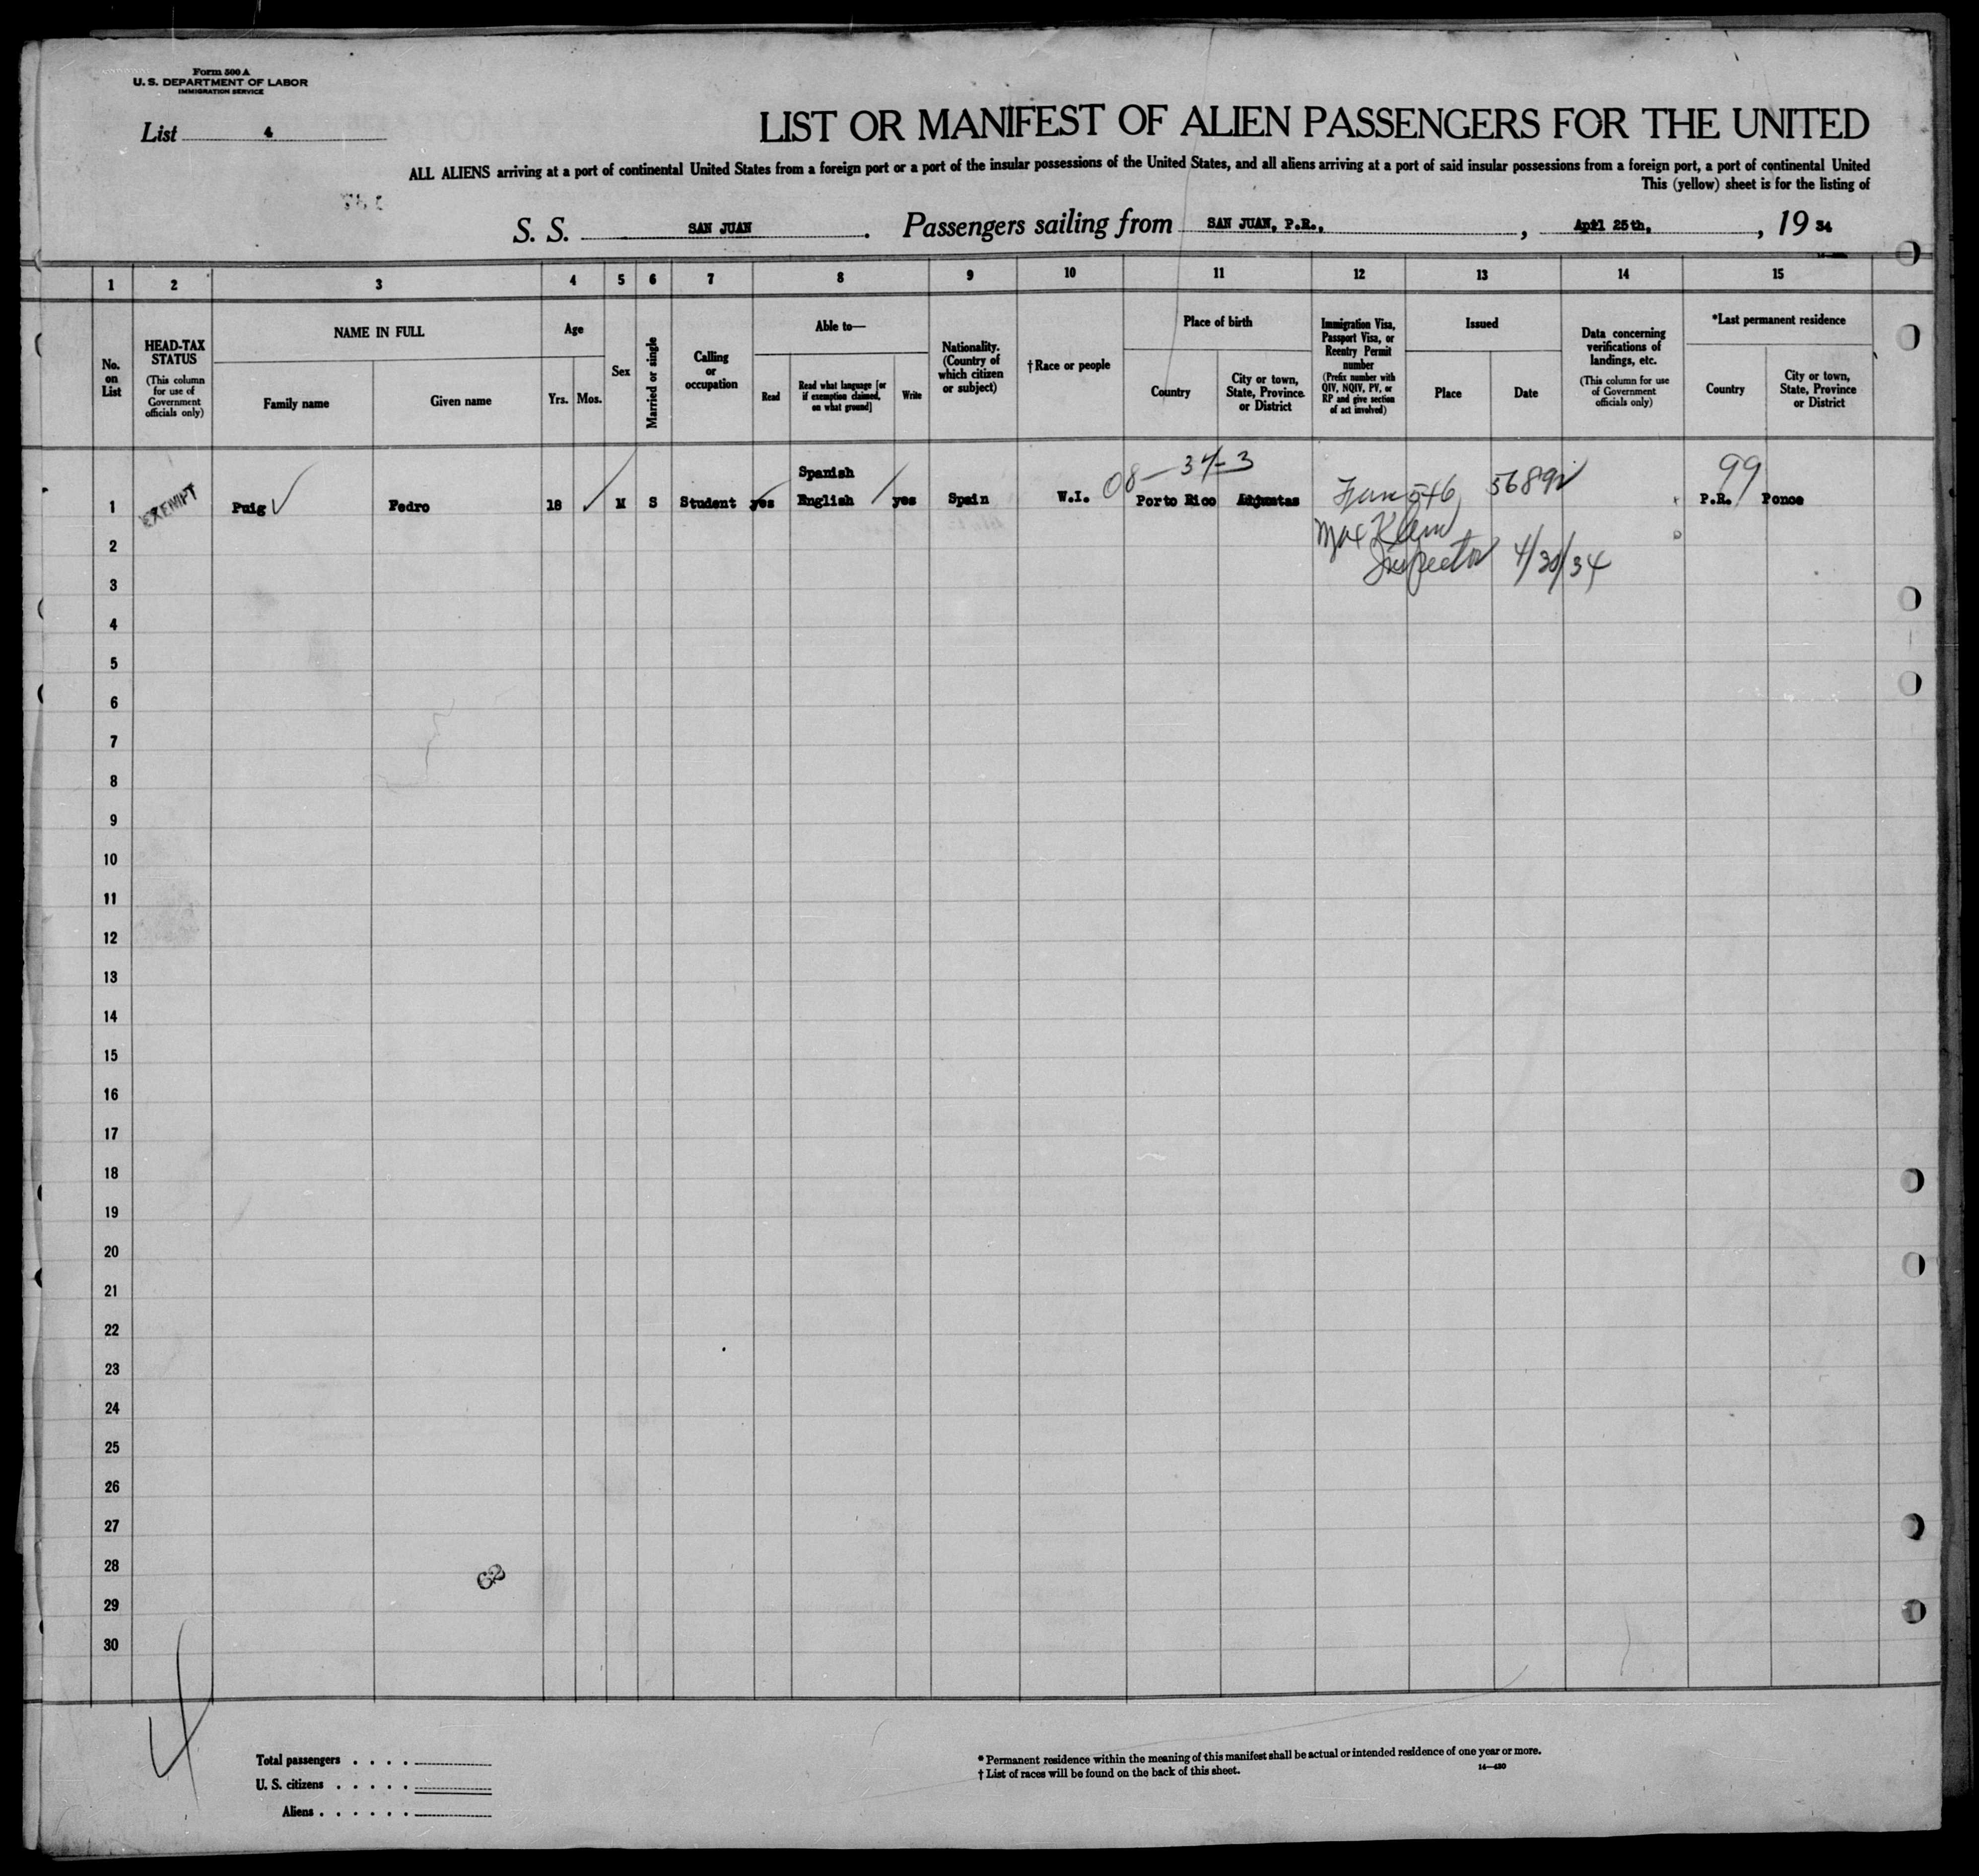 Form 500 A
U. S. DEPARTMENT OF LABOR
IMMIGRATION SERVICE
List 4
LIST OR MANIFEST OF ALIEN PASSENGERS FOR THE UNITED
ALL ALIENS arriving at a port of continental United States from a foreign port or a port of the insular possessions of the United States, and all aliens arriving at a port of said insular possessions from a foreign port, a port of continental United
This (yellow) sheet is for the listing of
S. S. SAN JUAN. Passengers sailing from SAN JUAN, P.R., , April 25th, , 19 34
1 2 3 4 5 6 7 8 9 10 11 12 13 14 15
No. on List
HEAD-TAX STATUS
(This column for use of Government officials only)
NAME IN FULL
Family name
Given name
Age
Yrs. Mos.
Sex
Married or single
Calling or occupation
Able to—
Read
Read what language [or if exemption claimed, on what ground]
Write
Nationality. (Country of which citizen or subject)
†Race or people
Place of birth
Country
City or town, State, Province or District
Immigration Visa, Passport Visa, or Reentry Permit number
(Prefix number with QIV, NQIV, PV, or RP and give section of act involved)
Issued
Place
Date
Data concerning verifications of landings, etc.
(This column for use of Government officials only)
*Last permanent residence
Country
City or town, State, Province or District
08—37-3
99
Spanish
1 EXEMPT Puig Pedro 18 M S Student yes English yes Spain W.I. Porto Rico 546 P.R. Ponce
2 Max Klein
3 Inspector 4/30/34
4
5
6
7
8
9
10
11
12
13
14
15
16
17
18
19
20
21
22
23
24
25
26
27
28
29
30
62
4
Total passengers . . . .
U. S. citizens . . . . .
Aliens . . . . . .
* Permanent residence within the meaning of this manifest shall be actual or intended residence of one year or more.
† List of races will be found on the back of this sheet.
14—430